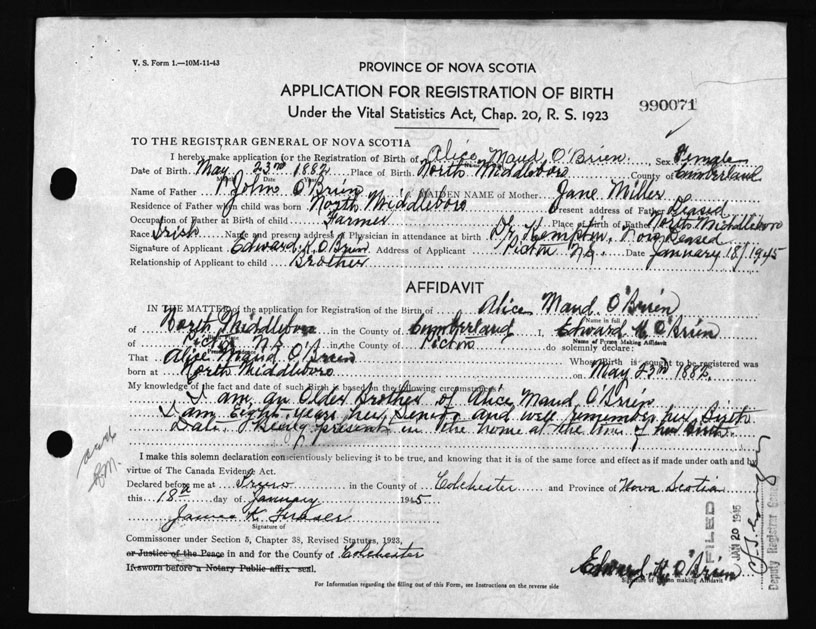 V. S. Form 1.—10M-11-43
PROVINCE OF NOVA SCOTIA
APPLICATION FOR REGISTRATION OF BIRTH
Under the Vital Statistics Act, Chap. 20, R. S. 1923
990071
TO THE REGISTRAR GENERAL OF NOVA SCOTIA
I hereby make application for the Registration of Birth of Alice Maud O'Brien Sex Female
Date of Birth May 23rd 1882 Place of Birth North Middleboro County of Cumberland
Name of Father John O'Brien MAIDEN NAME of Mother Jane Miller
Residence of Father when child was born North Middleboro Present address of Father
Occupation of Father at Birth of child Farmer Place of Birth of Father North Middleboro
Race Irish Name and present address of Physician in attendance at birth Dr. Kempton,
Signature of Applicant Edward H. O'Brien Address of Applicant Pictou N.S. Date January 18/1945
Relationship of Applicant to child Brother
AFFIDAVIT
IN THE MATTER of the application for Registration of the Birth of Alice Maud O'Brien
Name in full
of North Middleboro in the County of Cumberland I, Edward H O'Brien
Name of Person Making Affidavit
of Pictou N.S. in the County of Pictou do solemnly declare:
That Alice Maud O'Brien Whose Birth is sought to be registered was
born at North Middleboro on May 23rd 1882,
My knowledge of the fact and date of such Birth is based on the following circumstances
I am an Older Brother of Alice Maud O'Brien
I am Eight years her Senior and well remember her Birth
Date. Being present in the home at the time of her Birth.
I make this solemn declaration conscientiously believing it to be true, and knowing that it is of the same force and effect as if made under oath and by
virtue of The Canada Evidence Act.
Declared before me at Truro in the County of Colchester and Province of Nova Scotia
this 18th day of January 1945
James K.
Signature of
Commissioner under Section 5, Chapter 38, Revised Statutes, 1923,
or Justice of the Peace in and for the County of Colchester
If sworn before a Notary Public affix seal.
Edward H. O'Brien
Signature of Person making Affidavit
For Information regarding the filling out of this Form, see Instructions on the reverse side
FILED
JAN 20 1945
Deputy Registrar General